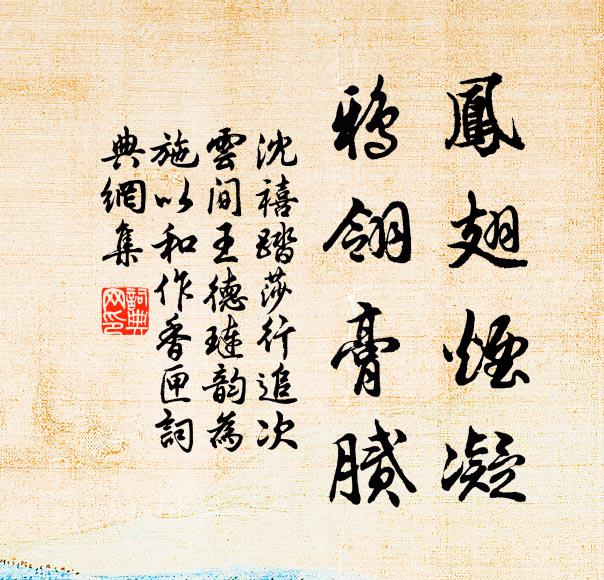 鳳翅煙凝
鴉翎膏膩
沈禧踏莎行追次
雲間王德璉韵為
施以和作香匣詞
典網集
詞典網印